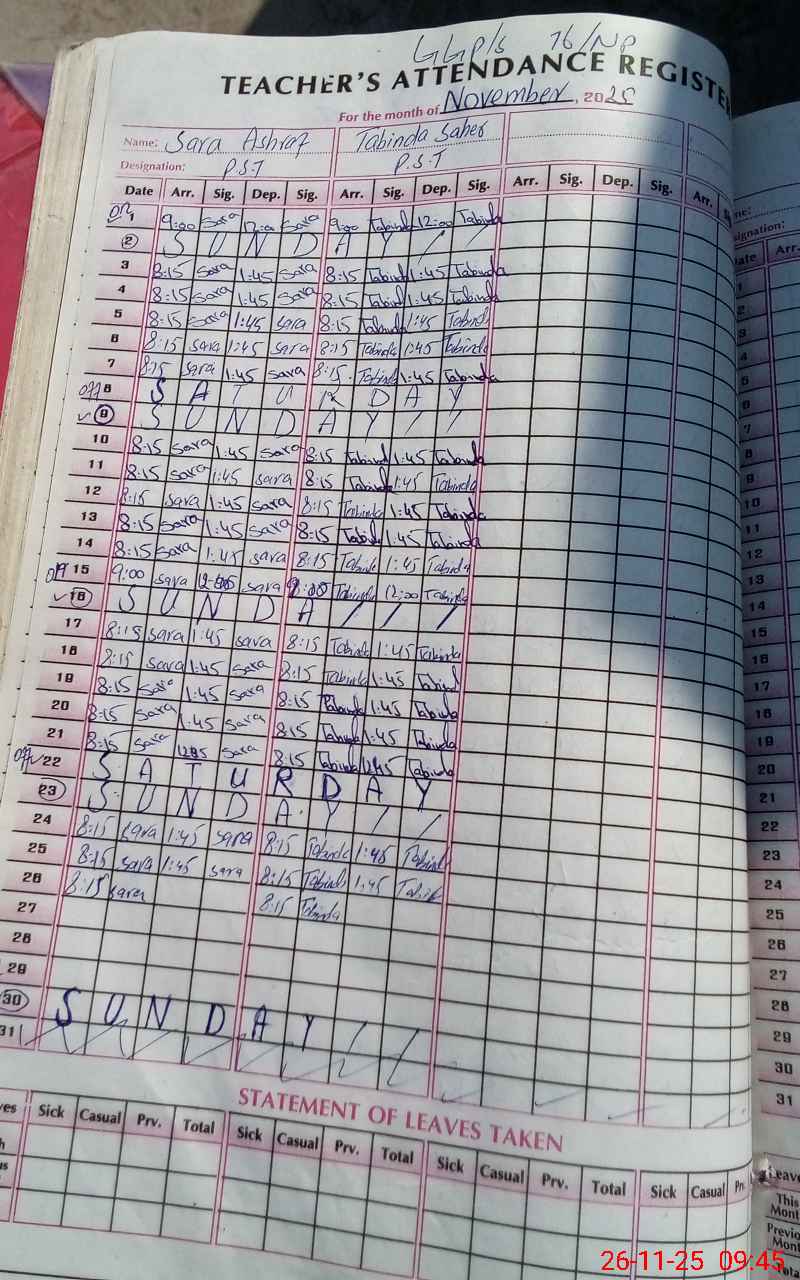 GGP/S 76/NP
TEACHER'S ATTENDANCE REGISTE
For the month of November, 2025
Name: Sara Ashraf Tabinda Saher
Designation: P.S.T P.S.T
Date Arr. Sig. Dep. Sig. Arr. Sig. Dep. Sig. Arr. Sig. Dep. Sig. Arr.
1 9:00 Sara 12:00 Sara 9:00 Tabinda 12:00 Tabinda
2 S U N D A Y / /
3 8:15 Sara 1:45 Sara 8:15 Tabinda 1:45 Tabinda
4 8:15 Sara 1:45 Sara 8:15 Tabinda 1:45 Tabinda
5 8:15 Sara 1:45 Sara 8:15 Tabinda 1:45 Tabinda
6 8:15 Sara 1:45 Sara 8:15 Tabinda 1:45 Tabinda
7 8:15 Sara 1:45 Sara 8:15 Tabinda 1:45 Tabinda
off 8 S A T U R D A Y
9 S U N D A Y / /
10 8:15 Sara 1:45 Sara 8:15 Tabinda 1:45 Tabinda
11 8:15 Sara 1:45 Sara 8:15 Tabinda 1:45 Tabinda
12 8:15 Sara 1:45 Sara 8:15 Tabinda 1:45 Tabinda
13 8:15 Sara 1:45 Sara 8:15 Tabinda 1:45 Tabinda
14 8:15 Sara 1:45 Sara 8:15 Tabinda 1:45 Tabinda
15 9:00 Sara Sara 9:00 Tabinda 12:00 Tabinda
16 S U N D A / / /
17 8:15 Sara 1:45 Sara 8:15 Tabinda 1:45 Tabinda
18 8:15 Sara 1:45 Sara 8:15 Tabinda 1:45 Tabinda
19 8:15 Sara 1:45 Sara 8:15 Tabinda 1:45 Tabinda
20 8:15 Sara 1:45 Sara 8:15 Tabinda 1:45 Tabinda
21 8:15 Sara Sara 8:15 Tabinda Tabinda
off 22 S A T U R D A Y
23 S U N D A Y / /
24 8:15 Sara 1:45 Sara 8:15 Tabinda 1:45 Tabinda
25 8:15 Sara 1:45 Sara 8:15 Tabinda 1:45 Tabinda
26 8:15 Sara 8:15 Tabinda
27
28
29
30 S U N D A Y / /
31
STATEMENT OF LEAVES TAKEN
Sick Casual Prv. Total Sick Casual Prv. Total Sick Casual Prv. Total Sick Casual
me:
signation:
ate Arr.
1
2
3
4
5
6
7
8
9
10
11
12
13
14
15
16
17
18
19
20
21
22
23
24
25
26
27
28
29
30
31
Leave
This
Mont
Previo
Mont
26-11-25 09:45